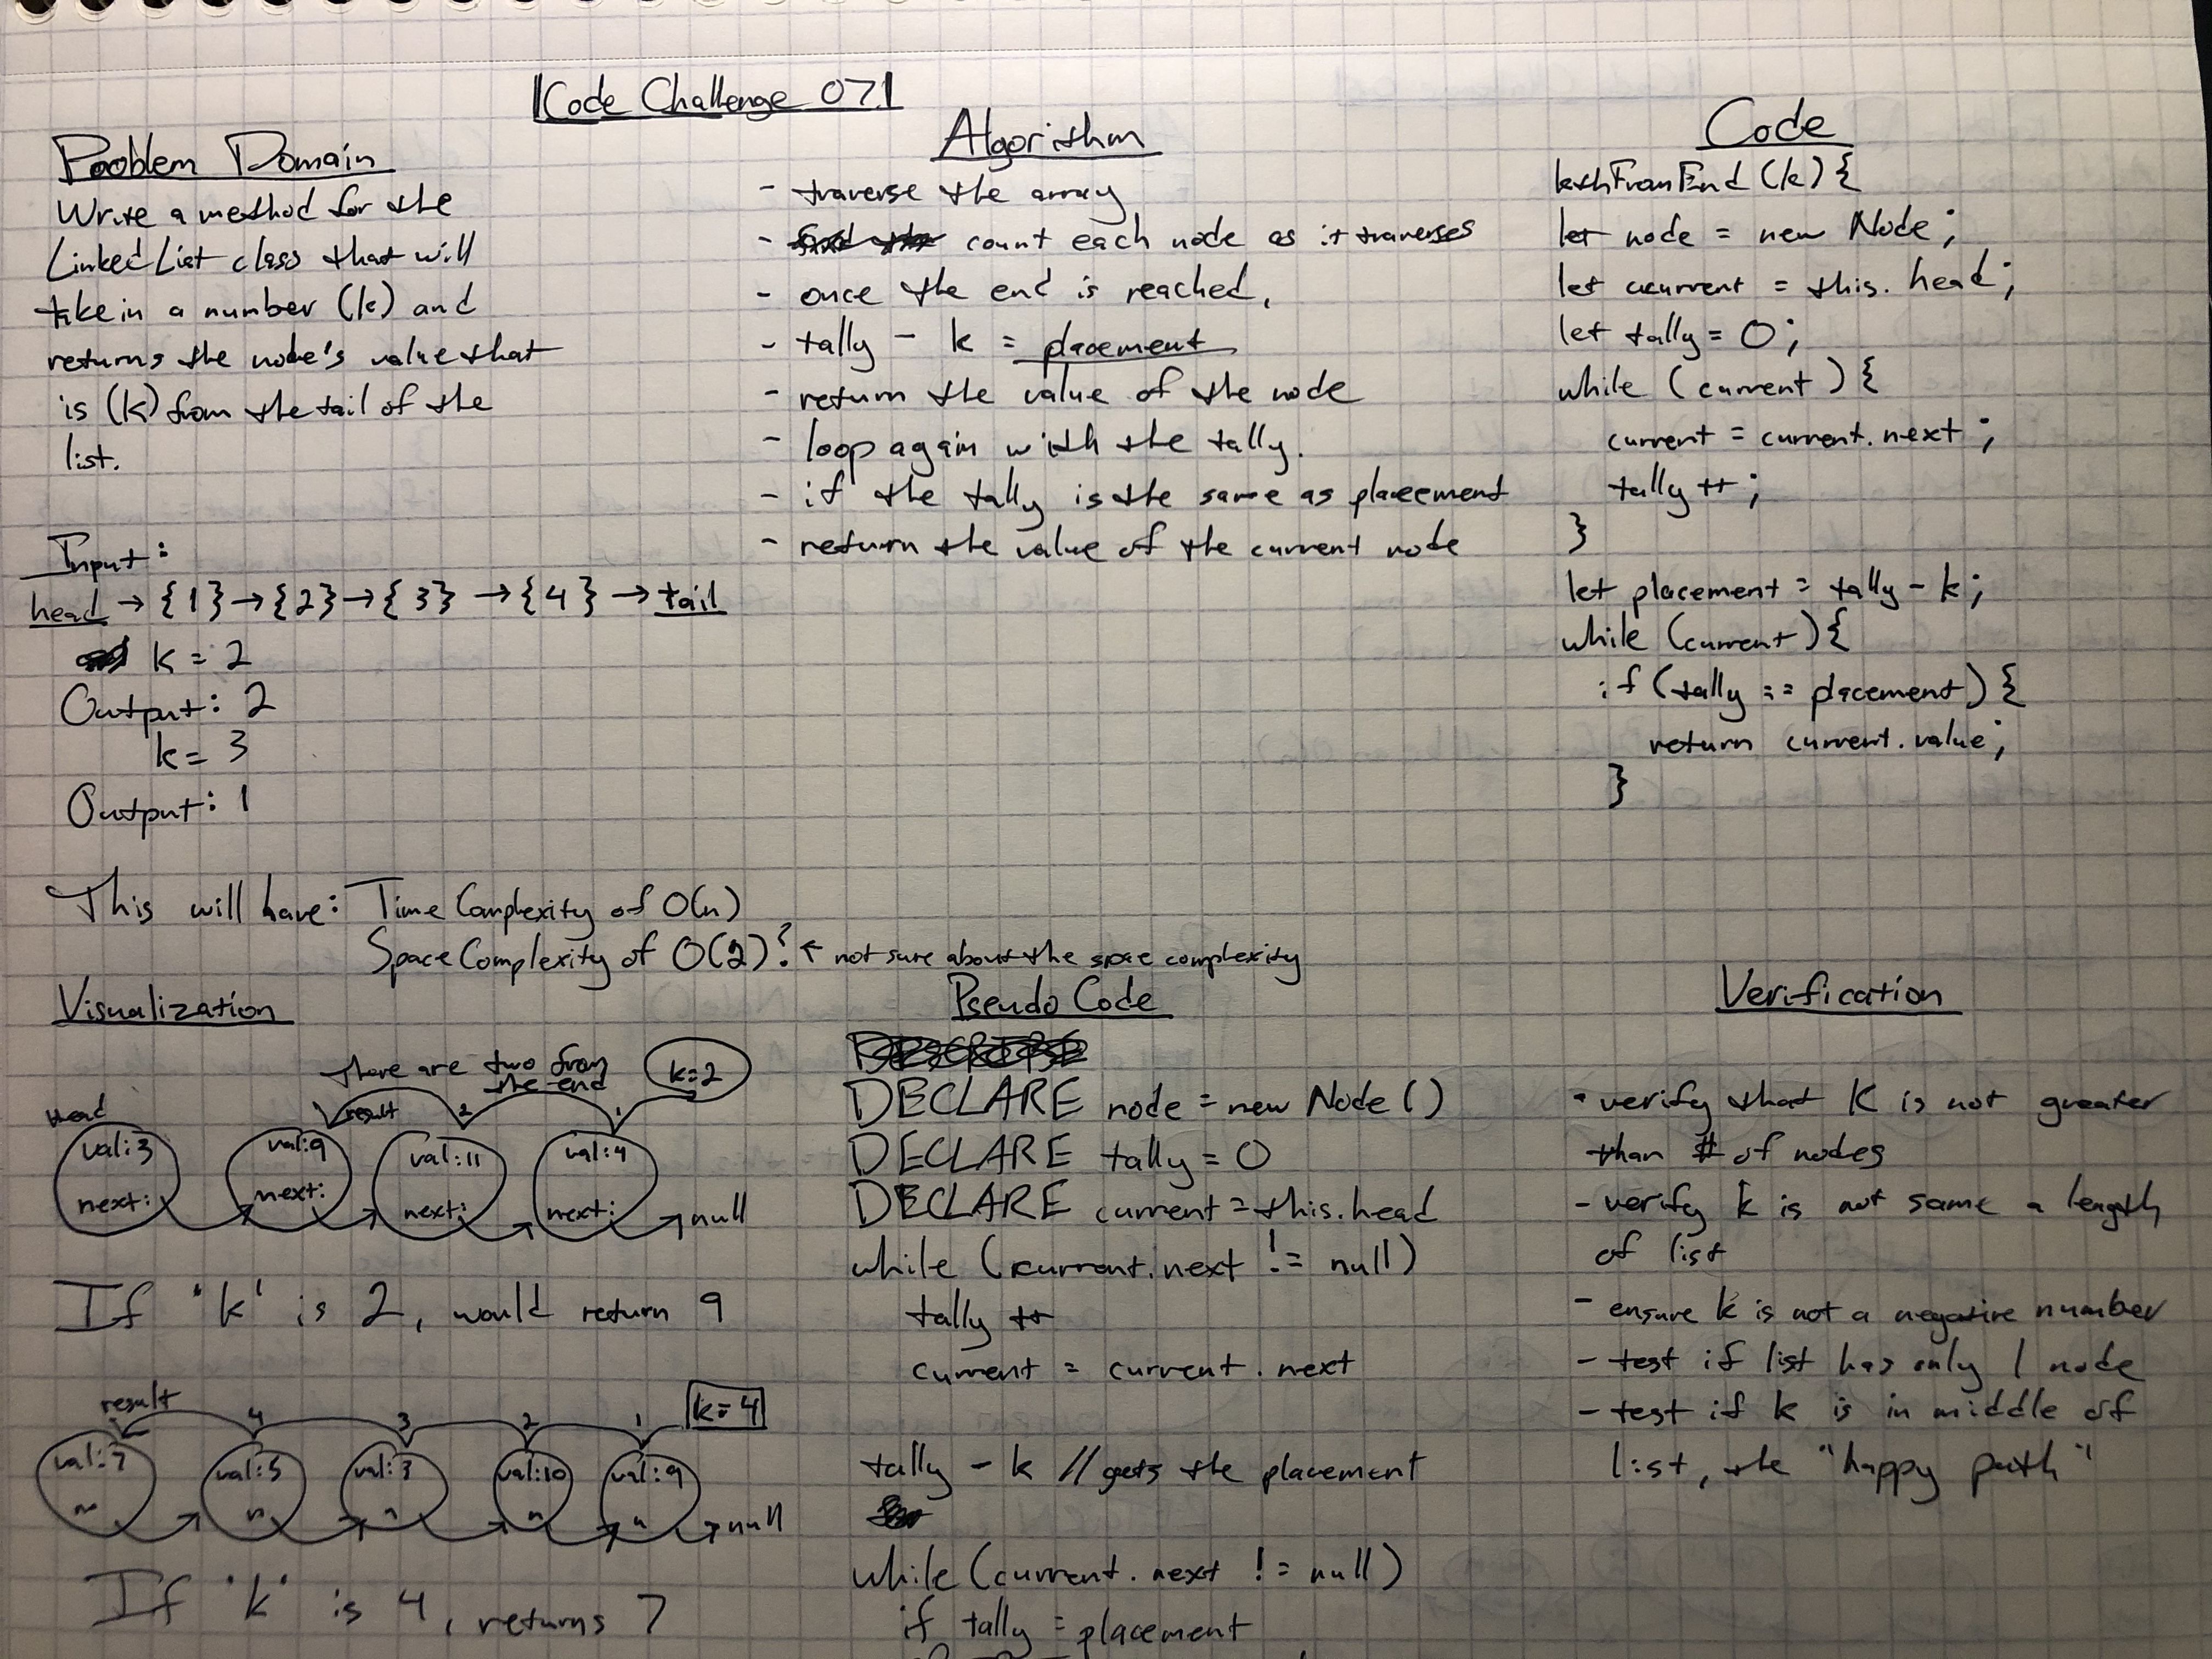 Code Challenge 07
Problem Domain
Write a method for the
Linked List class that will
take in a number (k) and
returns the node's value that
is (k) from the tail of the
list.
Input:
head → {1} → {2} → {3} → {4} → tail
k = 2
Output: 2
k = 3
Output: 1
This will have: Time Complexity of O(n)
Space Complexity of O(2)? ← not sure about the space complexity
Algorithm
- traverse the array
- count each node as it traverses
- once the end is reached,
- tally - k = placement
- return the value of the node
- loop again with the tally.
- if the tally is the same as placement
- return the value of the current node
Code
kthFromEnd (k) {
let node = new Node;
let current = this.head;
let tally = 0;
while (current) {
current = current.next;
tally ++;
}
let placement = tally - k;
while (current) {
if (tally == placement) {
return current.value;
}
Visualization
there are two from
the end
k=2
head
result
2
1
val:3
val:9
val:11
val:4
next:
next:
next:
next:
null
If 'k' is 2, would return 9
result
4
3
2
1
k=4
val:7
val:5
val:3
val:10
val:9
n
n
n
n
n
null
If 'k' is 4, returns 7
Pseudo Code
DECLARE node = new Node ()
DECLARE tally = 0
DECLARE current = this.head
while (current.next != null)
tally ++
current = current.next
tally - k // gets the placement
while (current.next != null)
if tally = placement
Verification
- verify that K is not greater
than # of nodes
- verify k is not same a length
of list
- ensure k is not a negative number
- test if list has only 1 node
- test if k is in middle of
list, the "happy path"